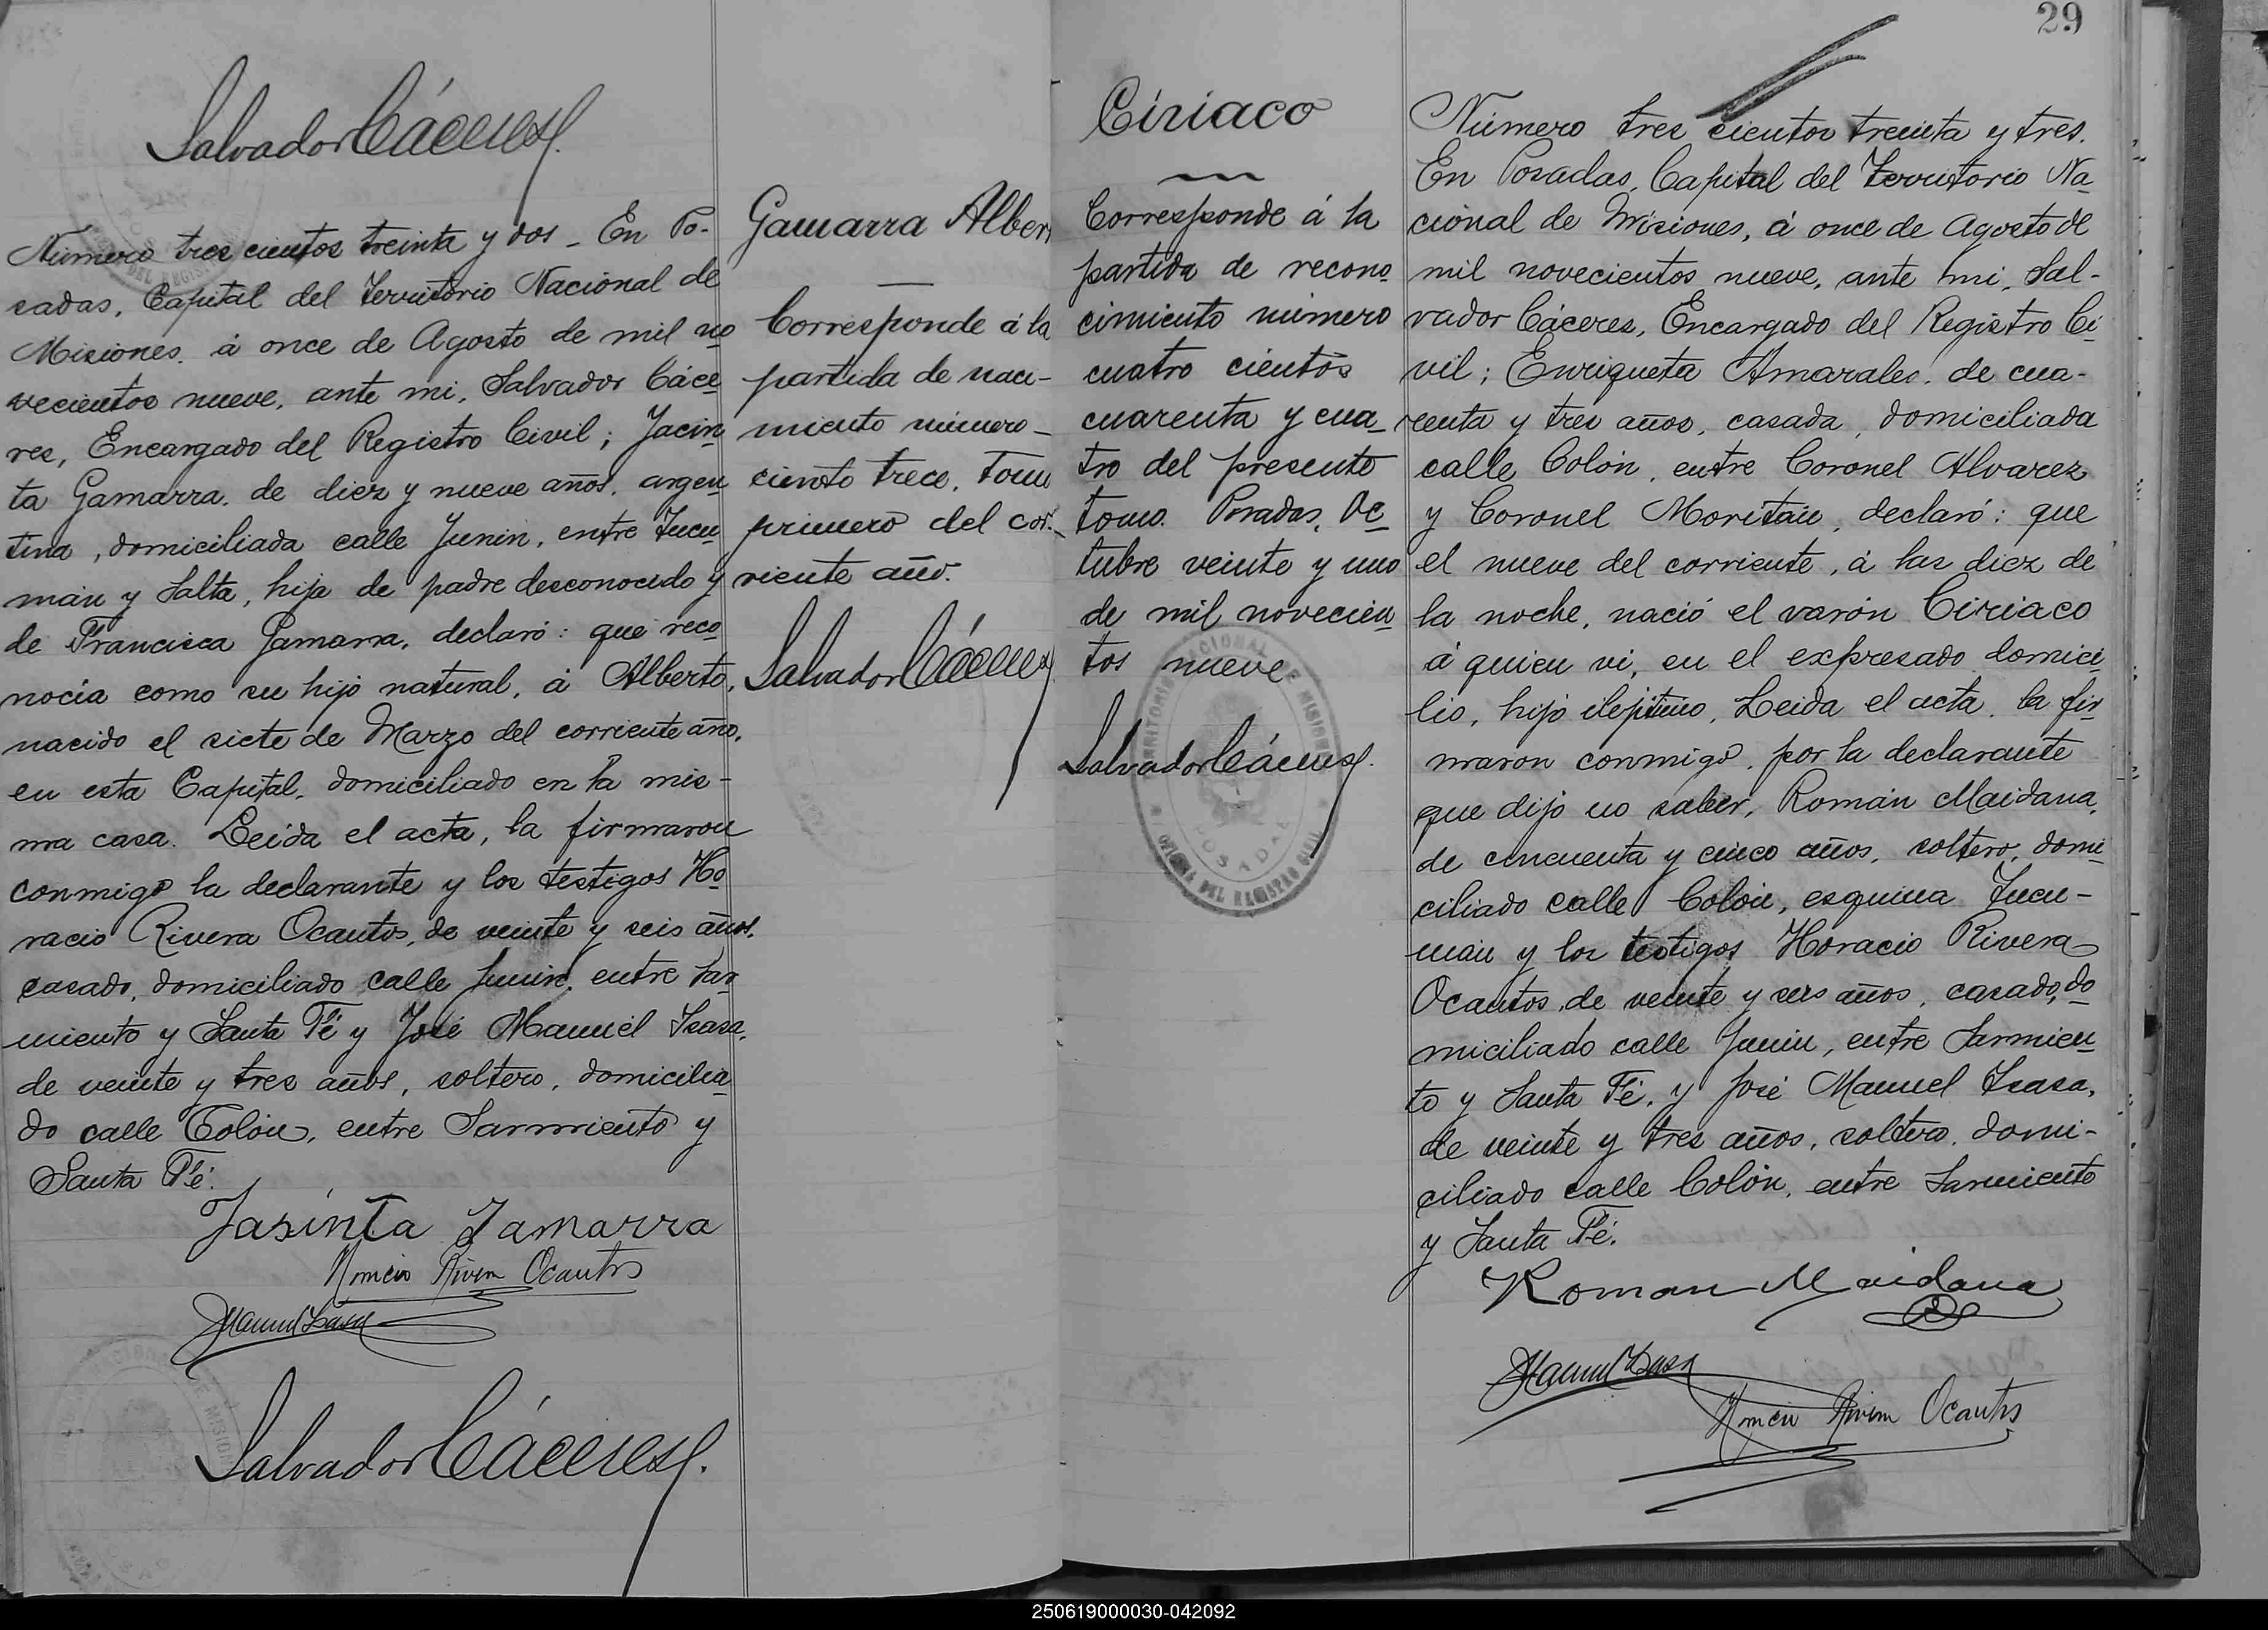 Salvador Cáceres
Número tres cientos treinta y dos _ En Po-
sadas, Capital del Territorio Nacional de
Misiones, á once de Agosto de mil no
vecientos nueve, ante mi, Salvador Cáce
res, Encargado del Registro Civil; Jacin
ta Gamarra, de diez y nueve años, argen
tina, domiciliada calle Junin, entre Tucu
mán y Salta, hija de padre desconocido y
de Francisca Gamarra, declaró: que reco
nocía como su hijo natural, á Alberto,
nacido el siete de Marzo del corriente año,
en esta Capital, domiciliado en la mis-
ma casa. Leida el acta, la firmaron
conmigo la declarante y los testigos Ho
racio Rivera Ocantos, de veinte y seis años,
casado, domiciliado calle Junin, entre Sar
miento y Santa Fé y José Manuel Isasa,
de veinte y tres años, soltero, domicilia
do calle Colón, entre Sarmiento y
Santa Fé.
Jasinta Gamarra
Horacio Rivera Ocantos
JManuel Isasa
Salvador Cáceres
Gamarra Alber
Corresponde á la
partida de naci-
miento número
ciento trece, Tomo
primero del cor-
riente año.
Salvador Cáceres
Ciriaco
Corresponde á la
partida de recono
cimiento número
cuatro cientos
cuarenta y cua_
tro del presente
tomo. Posadas, Oc_
tubre veinte y uno
de mil novecien
tos nueve
Salvador Cáceres
TERRITORIO NACIONAL DE MISIONES
POSADAS
OFICINA DEL REGISTRO CIVIL
29
Número tres cientos treinta y tres.
En Posadas, Capital del Territorio Na
cional de Misiones, á once de Agosto de
mil novecientos nueve, ante mi, Sal-
vador Cáceres, Encargado del Registro Ci
vil; Enriqueta Amarales, de cua-
renta y tres años, casada, domiciliada
calle Colón, entre Coronel Alvarez
y Coronel Moritán, declaró: que
el nueve del corriente, á las diez de
la noche, nació el varón Ciriaco
á quien vi, en el expresado domici
lio, hijo ilejítimo, Leida el acta, la fir
maron conmigo, por la declarante
que dijo no saber, Román Maidana,
de cincuenta y cinco años, soltero, domi
ciliado calle Colón, esquina Tucu-
mán y los testigos Horacio Rivera
Ocantos, de veinte y seis años, casado, do
miciliado calle Junin, entre Sarmien
to y Santa Fé, y José Manuel Isasa,
de veinte y tres años, soltero, domi-
ciliado calle Colón, entre Sarmiento
y Santa Fé.
Roman Maidana
JManuel Isasa
Horacio Rivera Ocantos
250619000030-042092